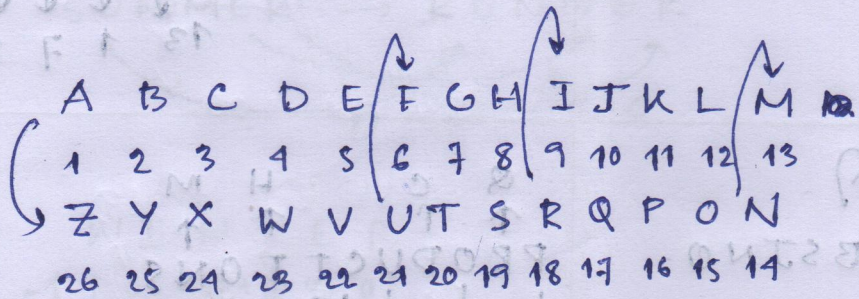 A B C D E F G H I J K L M
1 2 3 4 5 6 7 8 9 10 11 12 13
Z Y X W V U T S R Q P O N
26 25 24 23 22 21 20 19 18 17 16 15 14